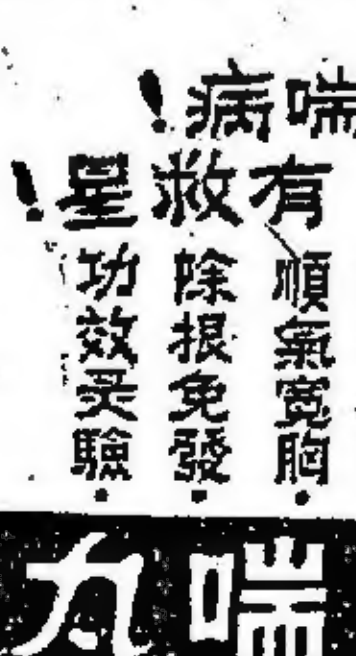 喘病!
有救星!
順氣寬胸•
除根免發•
功效灵驗•
喘丸